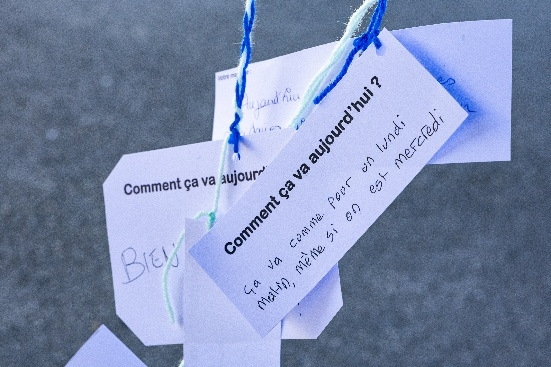 Votre me
Aujourd'hui
Comment ça va aujourd'
BIEN
Comment ça va aujourd'hui ?
ça va comme pour un lundi
matin, même si on est mercredi